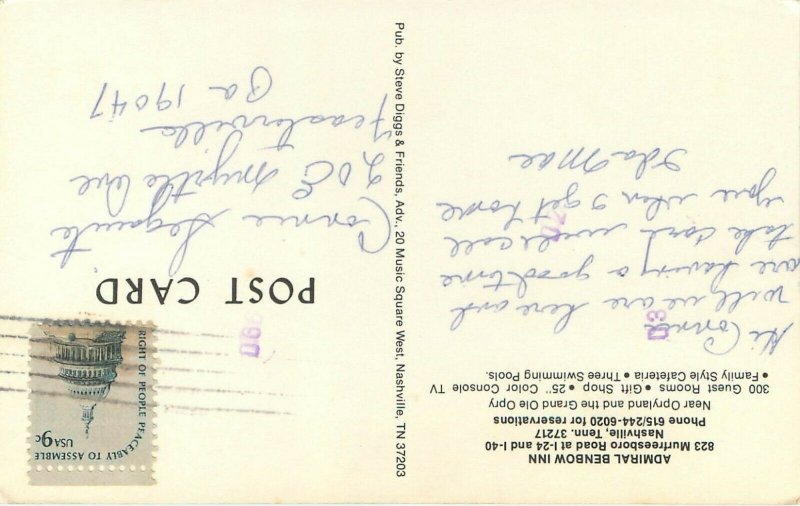 ADMIRAL BENBOW INN
823 Murfreesboro Road at I-24 and I-40
Nashville, Tenn. 37217
Phone 615/244-6020 for reservations
Near Opryland and the Grand Ole Opry
300 Guest Rooms • Gift Shop • 25" Color Console TV
• Family Style Cafeteria • Three Swimming Pools.
Hi Connie
Well we are here and
are having a good time
take care will call
you when I get home
Ida Mae
Pub. by Steve Diggs & Friends, Adv., 20 Music Square West, Nashville, TN 37203
RIGHT OF PEOPLE PEACEABLY TO ASSEMBLE
USA 9c
POST CARD
Connie
20 E Myrtle Ave
Feasterville
Pa 19047